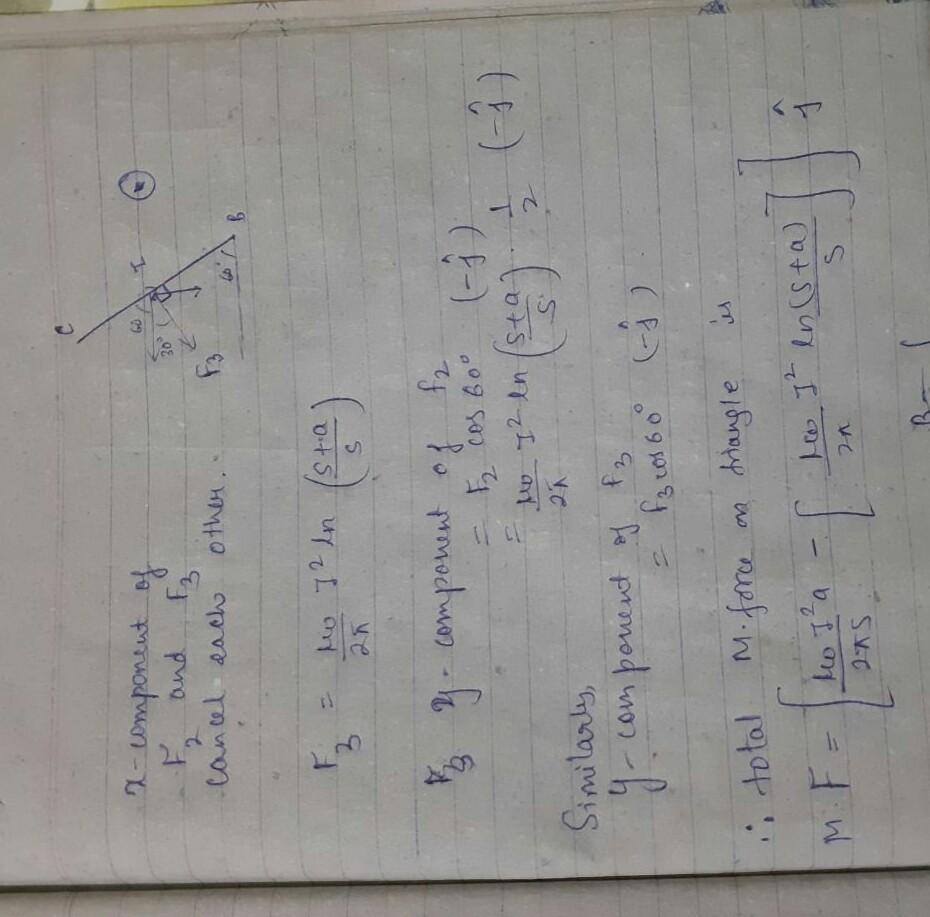 x-component of
F₂ and F₃
cancel each other.
C
60
30°
I
F₃
60°
B
F₃ = μ₀/2π I² ln (s+a/s)
y-component of f₂
= F₂ cos 60° (-ĵ)
= μ₀/2π I² ln (s+a/s) · 1/2 (-ĵ)
Similarly,
y-component of f₃
= f₃ cos 60° (-ĵ)
∴ total M.force on triangle is
M.F = [μ₀I²a/2πs - [μ₀/2π I² ln (s+a)/s]] ĵ